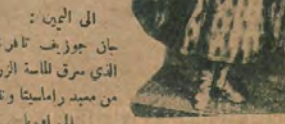 الى اليمين :
جان جوزيف تافر
الذي سرق الماسة الزر
من معبد راماسيتا و